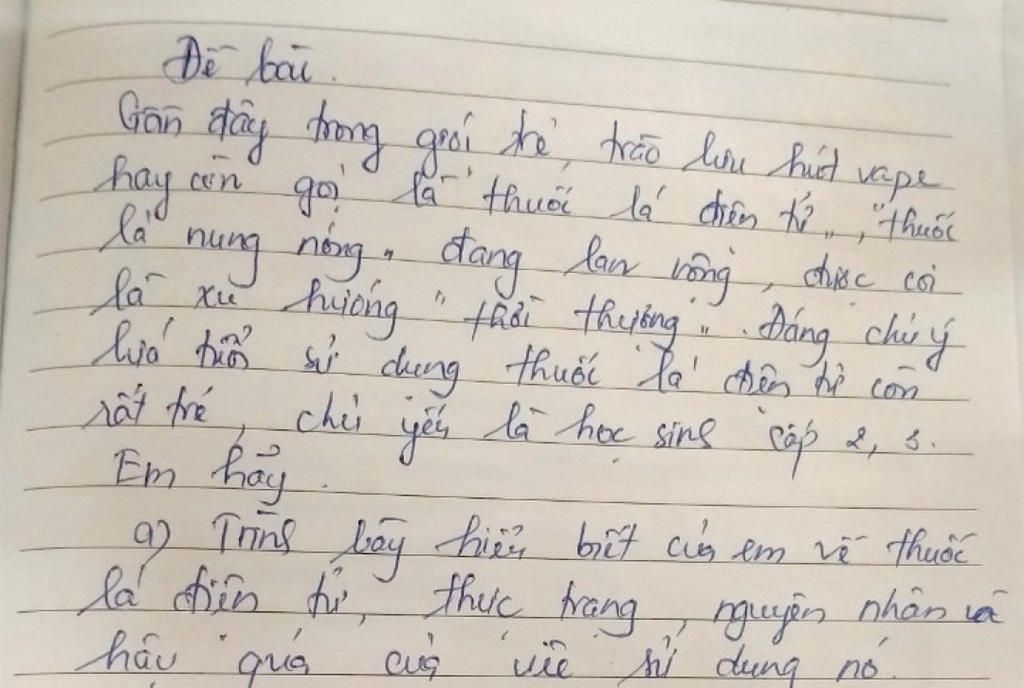 Đề bài.
Gần đây trong giới trẻ, trào lưu hút vape
hay còn gọi là "thuốc lá điện tử", "thuốc
lá nung nóng" đang lan rộng, được coi
là xu hướng "thời thượng". Đáng chú ý
lứa tuổi sử dụng thuốc lá điện tử còn
rất trẻ, chủ yếu là học sinh cấp 2, 3.
Em hãy.
a) Trình bày hiểu biết của em về thuốc
lá điện tử, thực trạng, nguyên nhân và
hậu quả của việc sử dụng nó.